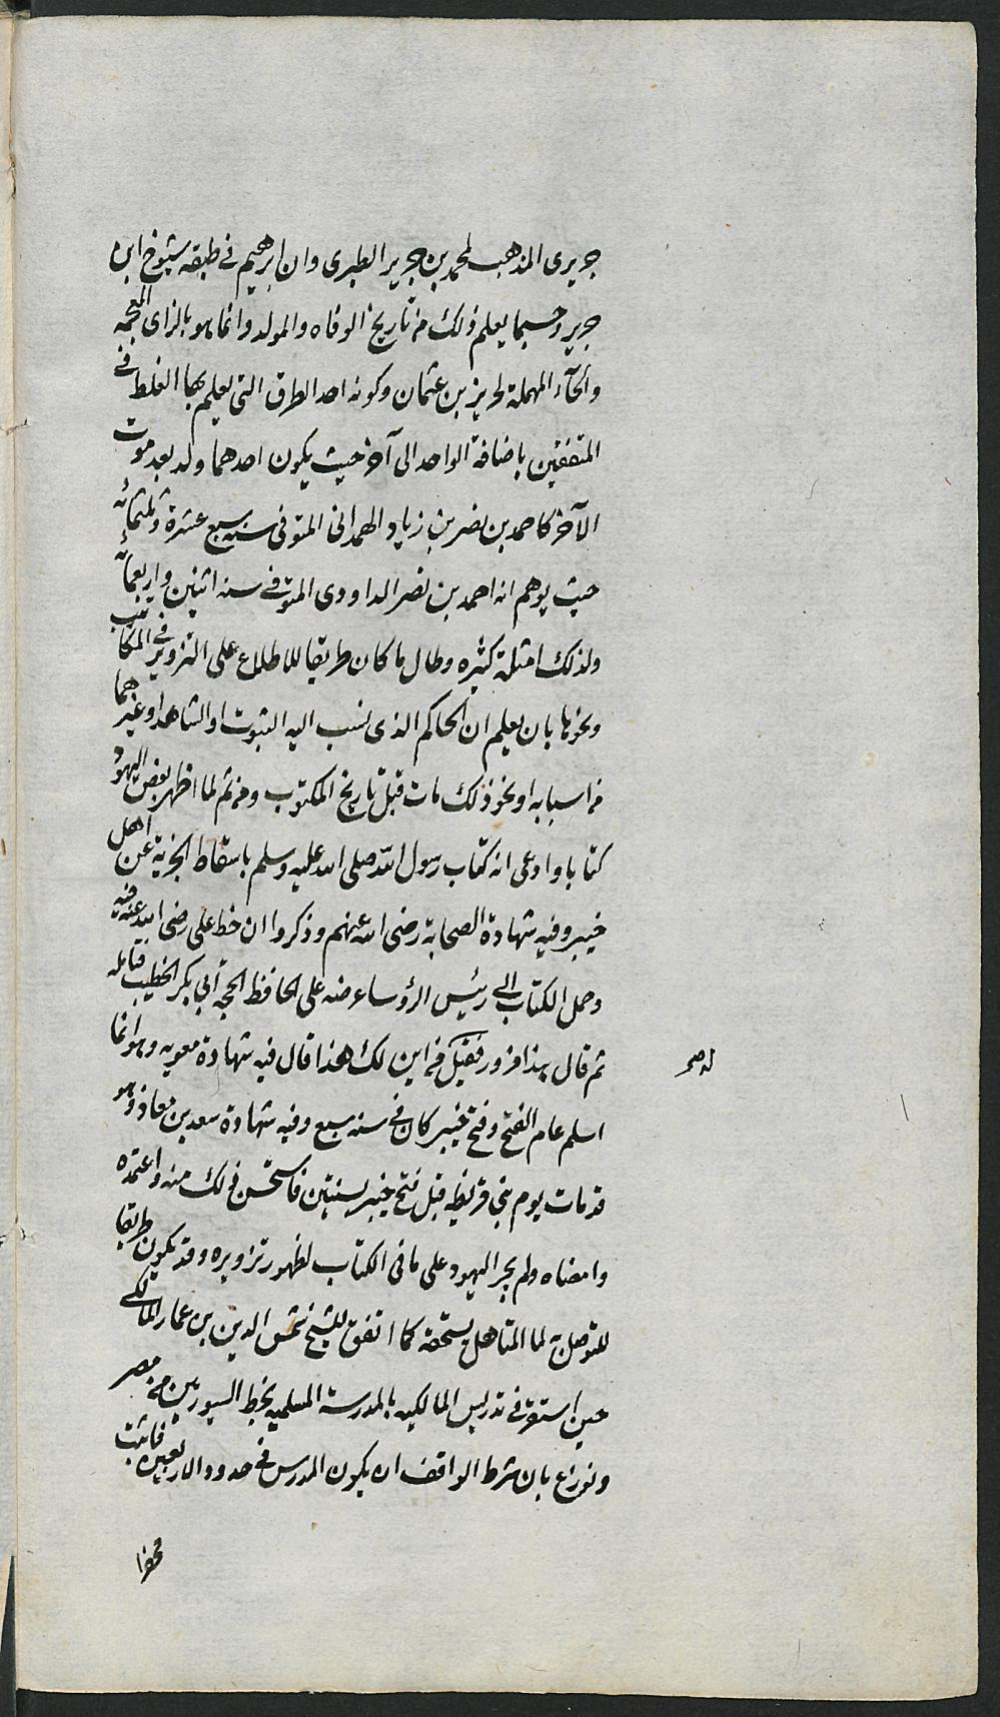 جريرى المذهب لمحمد بن جرير الطبرى وان ابرهيم فى طبقه شيوخ ابن
جرير حسبما يعلم ذلك من تاريخ الوفاه والمولد وانما هو بالزاى المعجمه
والحآء المهملة لحريز بن عثمان وكونه احد الطرق التى يعلم بها الغلط فى
المتفقين باضافة الواحد الى آخر حيث يكون احدهما ولد بعد موت
الآخر كاحمد بن نصر بن زياد الهمدانى المتوفى سنه سبع عشرة وثلثمائه
حيث يوهم انه احمد بن نصر الداودى المتوفى سنه اثنين واربعمائه
ولذلك امثلة كثيره وطال ما كان طريقا للاطلاع على التزوير فى المكاتيب
ونحوها بان يعلم ان الحاكم الذى نسب اليه الثبوت او الشاهد او غيرهما
من اسبابه او نحو ذلك مات قبل تاريخ المكتوب ومن ثم لما اظهر بعض اليهود
كتابا وادعى انه كتاب رسول الله صلى الله عليه وسلم باسقاط الجزية عن اهل
خيبر وفيه شهادة الصحابة رضى الله عنهم وذكروا ان خط على رضى الله عنه فيه
وحمل الكتاب الى رئيس الرؤساء عرضه على الحافظ الحجة ابى بكر الخطيب فتامله
ثم قال هذا مزور فقيل من اين لك هذا قال فيه شهادة معويه وهو انما
اسلم عام الفتح وفتح خيبر كان فى سنه سبع وفيه شهادة سعد بن معاذ وهو
قد مات يوم بنى قريظه قبل فتح خيبر بسنتين فاستحسن ذلك منه واعتمده
وامضاه ولم يجر اليهود على ما فى الكتاب لظهور تزويره وقد يكون طريقا
للتوصل به لما المتاهل يستحقه كما اتفق للشيخ شمس الدين بن عمار المالكى
حين استقر فى تدريس المالكيه بالمدرسة المسلميه بخط السيوريين من مصر
ونوزع بان شرط الواقف ان يكون المدرس فى حدود الاربعين فاثبت
محضرا